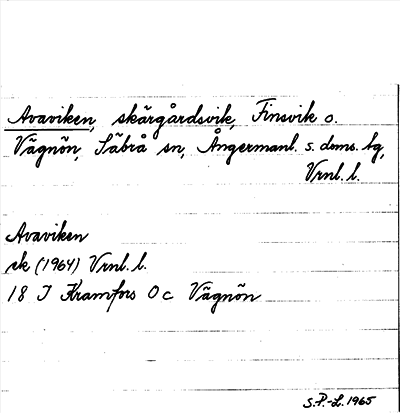 Avaviken, skärgårdsvik, Finsvik o.
Vägnön, Säbrå sn, Ångermanl. s. doms. hg,
Vrnl. l.
Avaviken
ek (1964) Vrnl. l.
18 I Kramfors O c Vägnön
S.P.-L. 1965